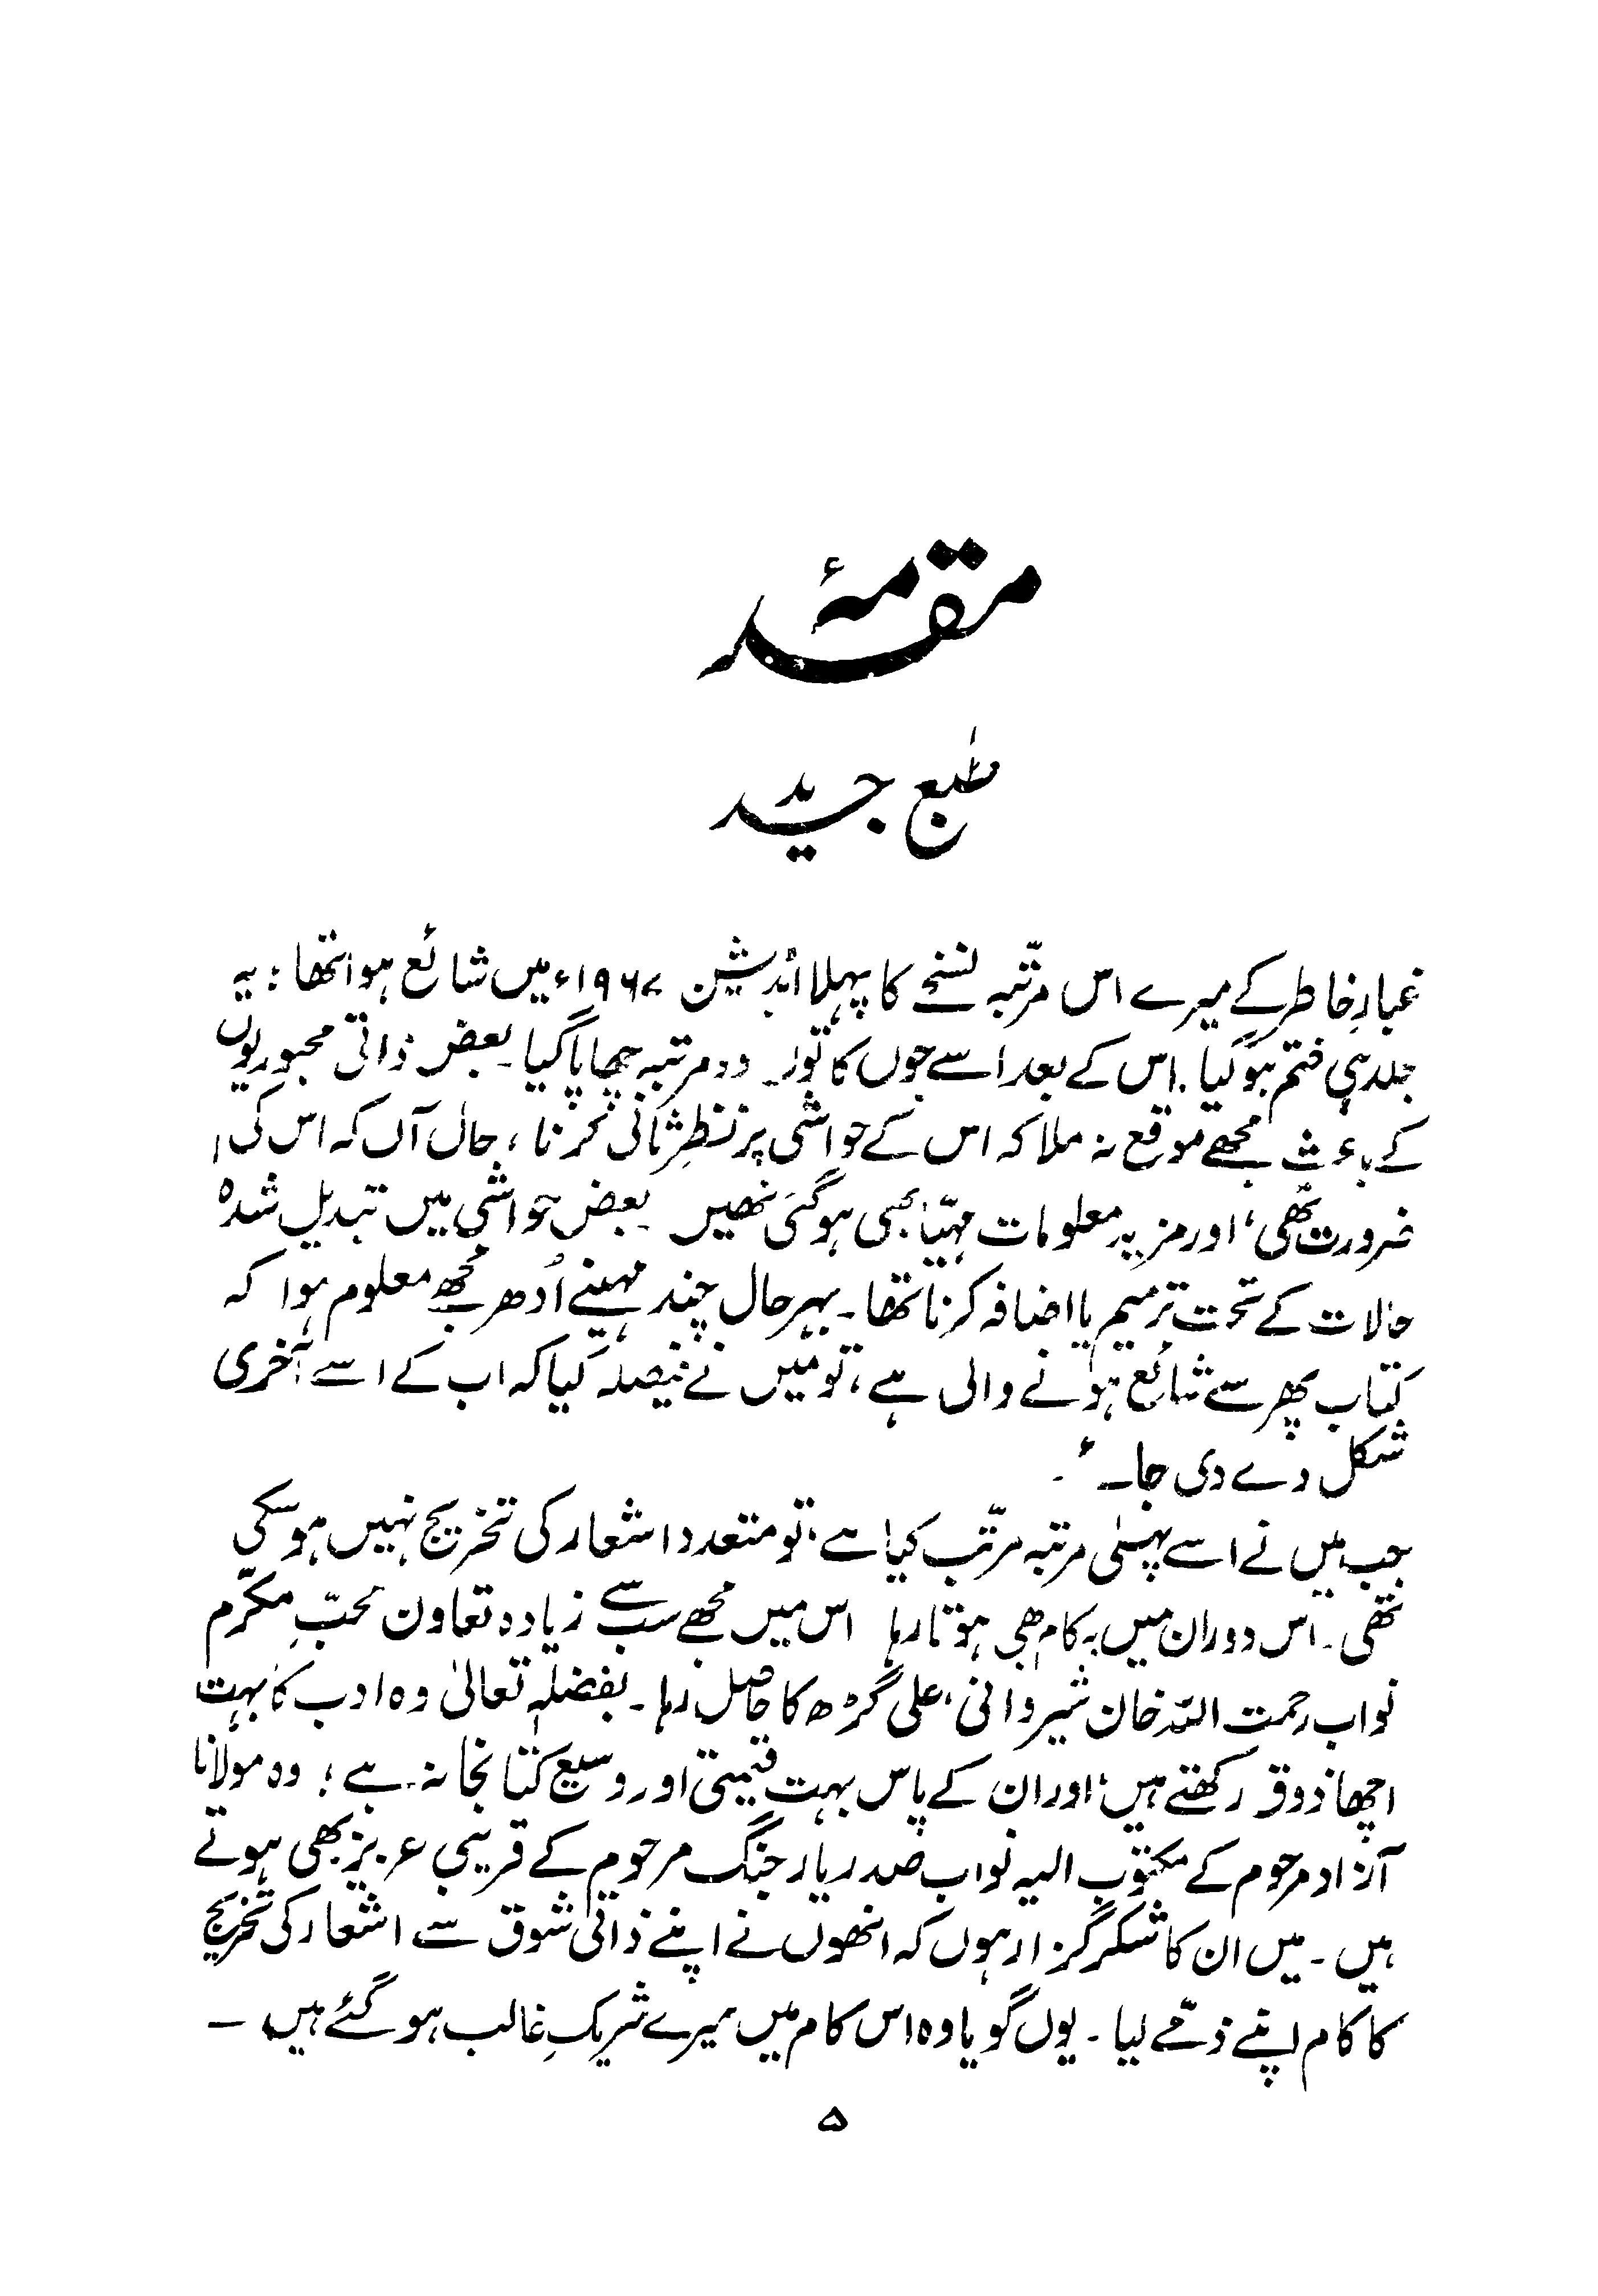 مقدمۂ
طبع جدید
غبارِ خاطر کے میرے اس مرتّبہ نسخے کا پہلا اڈیشن ۱۹۶۷ء میں شائع ہوا تھا؛ یہ
جلد ہی ختم ہوگیا۔ اس کے بعد اسے جوں کا توں دو مرتبہ چھاپا گیا۔ بعض ذاتی مجبوریوں
کے باعث مجھے موقع نہ ملا کہ اس کے حواشی پر نظرِ ثانی کرنا، حال آں کہ اس کی
ضرورت تھی، اور مزید معلومات مہیّا بھی ہوگئی تھیں۔ بعض حواشی میں تبدیل شدہ
حالات کے تحت ترمیم یا اضافہ کرنا تھا۔ بہرحال چند مہینے اُدھر مجھے معلوم ہوا کہ
کتاب پھر سے شائع ہونے والی ہے، تو میں نے فیصلہ کیا کہ اب کے اسے آخری
شکل دے دی جائے۔
جب میں نے اسے پہلی مرتبہ مرتّب کیا ہے، تو متعدد اشعار کی تخریج نہیں ہوسکی
تھی۔ اس دوران میں یہ کام بھی ہوتا رہا۔ اس میں مجھے سب سے زیادہ تعاون محبِّ مکرّم
نواب رحمت اللہ خان شیروانی، علی گڑھ کا حاصل رہا۔ بفضلہٖ تعالیٰ وہ ادب کا بہت
اچھا ذوق رکھتے ہیں، اور ان کے پاس بہت قیمتی اور وسیع کتابخانہ ہے؛ وہ مولانا
آزاد مرحوم کے مکتوب الیہ نواب صدر یار جنگ مرحوم کے قریبی عزیز بھی ہوتے
ہیں۔ میں ان کا شکر گزار ہوں کہ انھوں نے اپنے ذاتی شوق سے اشعار کی تخریج
کا کام اپنے ذمّے لیا۔ یوں گویا وہ اس کام میں میرے شریکِ غالب ہوگئے ہیں۔
۵